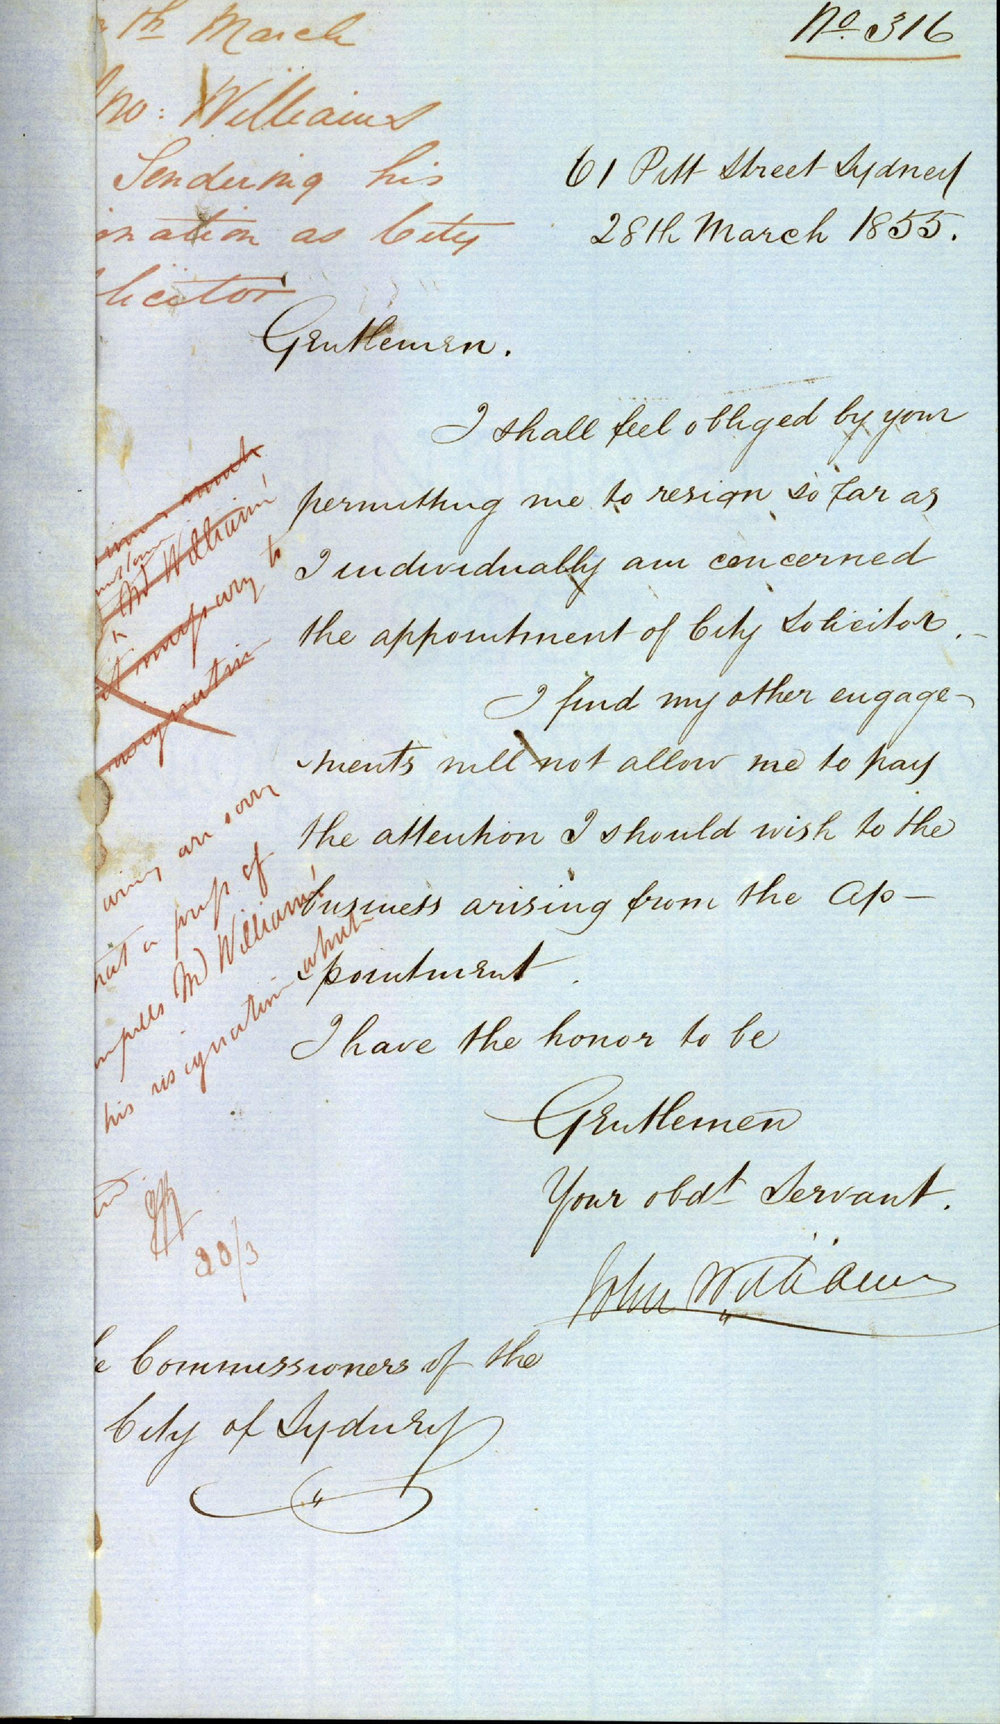 No. 316
th March
Jno: Williams
Tendering his
ination as City
licitor
61 Pitt Street Sydney
28th March 1855.
Gentlemen.
I shall feel obliged by your
permitting me to resign so far as
I individually am concerned
the appointment of City Solicitor.
I find my other engage-
ments will not allow me to pay
the attention I should wish to the
business arising from the Ap-
pointment.
I have the honor to be
Gentlemen
Your obdt Servant.
John Williams
Commissioners of the
City of Sydney
Mr Williams'
it necessary to
resignation
are sorry
that a press of
compells Mr Williams'
his resignation